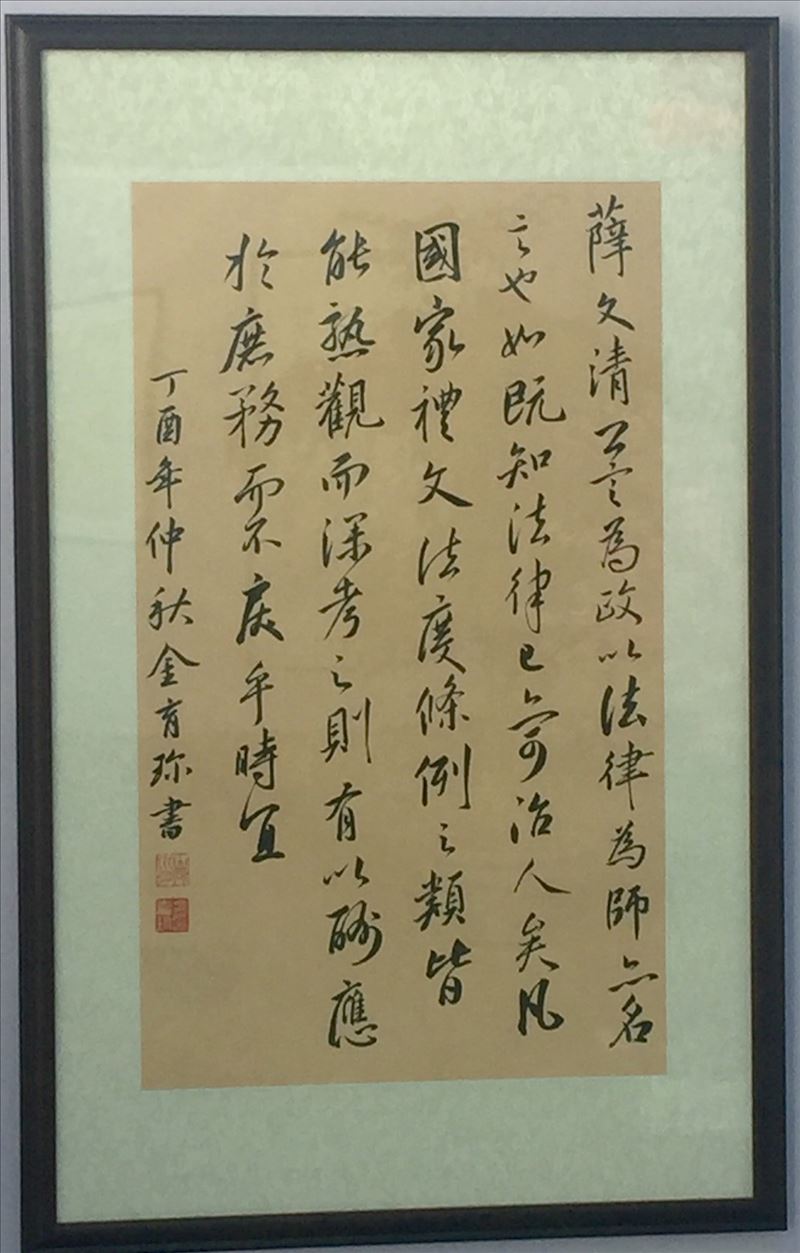 薛文清公言為政以法律為師亦名
言也如既知法律已亦可治人矣凡
國家禮文法度條例之類皆
能熟觀而深考之則有以酬應
於庶務而不戾乎時宜
丁酉年仲秋金育珎書